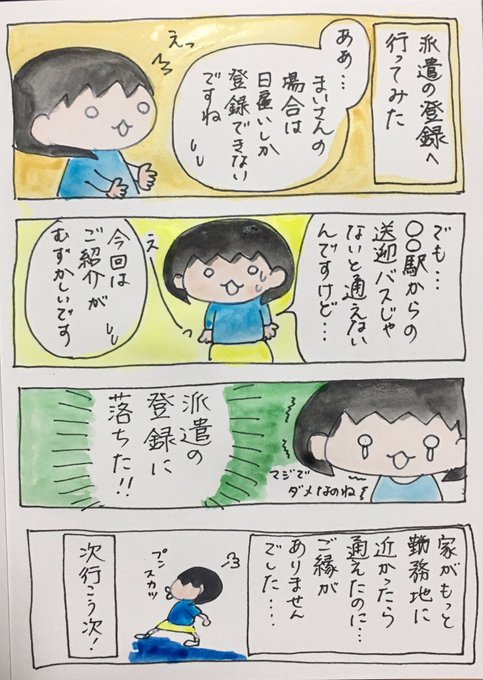 派遣の登録へ
行ってみた
ああ…
まいさんの
場合は
日雇いしか
登録できない
ですね
えっ
でも…
〇〇駅からの
送迎バスじゃ
ないと通えない
んですけど…
え
今回は
ご紹介が
むずかしいです
マジで
ダメなのね!
派遣の
登録に
落ちた!!
家がもっと
勤務地に
近かったら
通えたのに…
ご縁が
ありません
でした…
プン
スカッ
次行こう次!